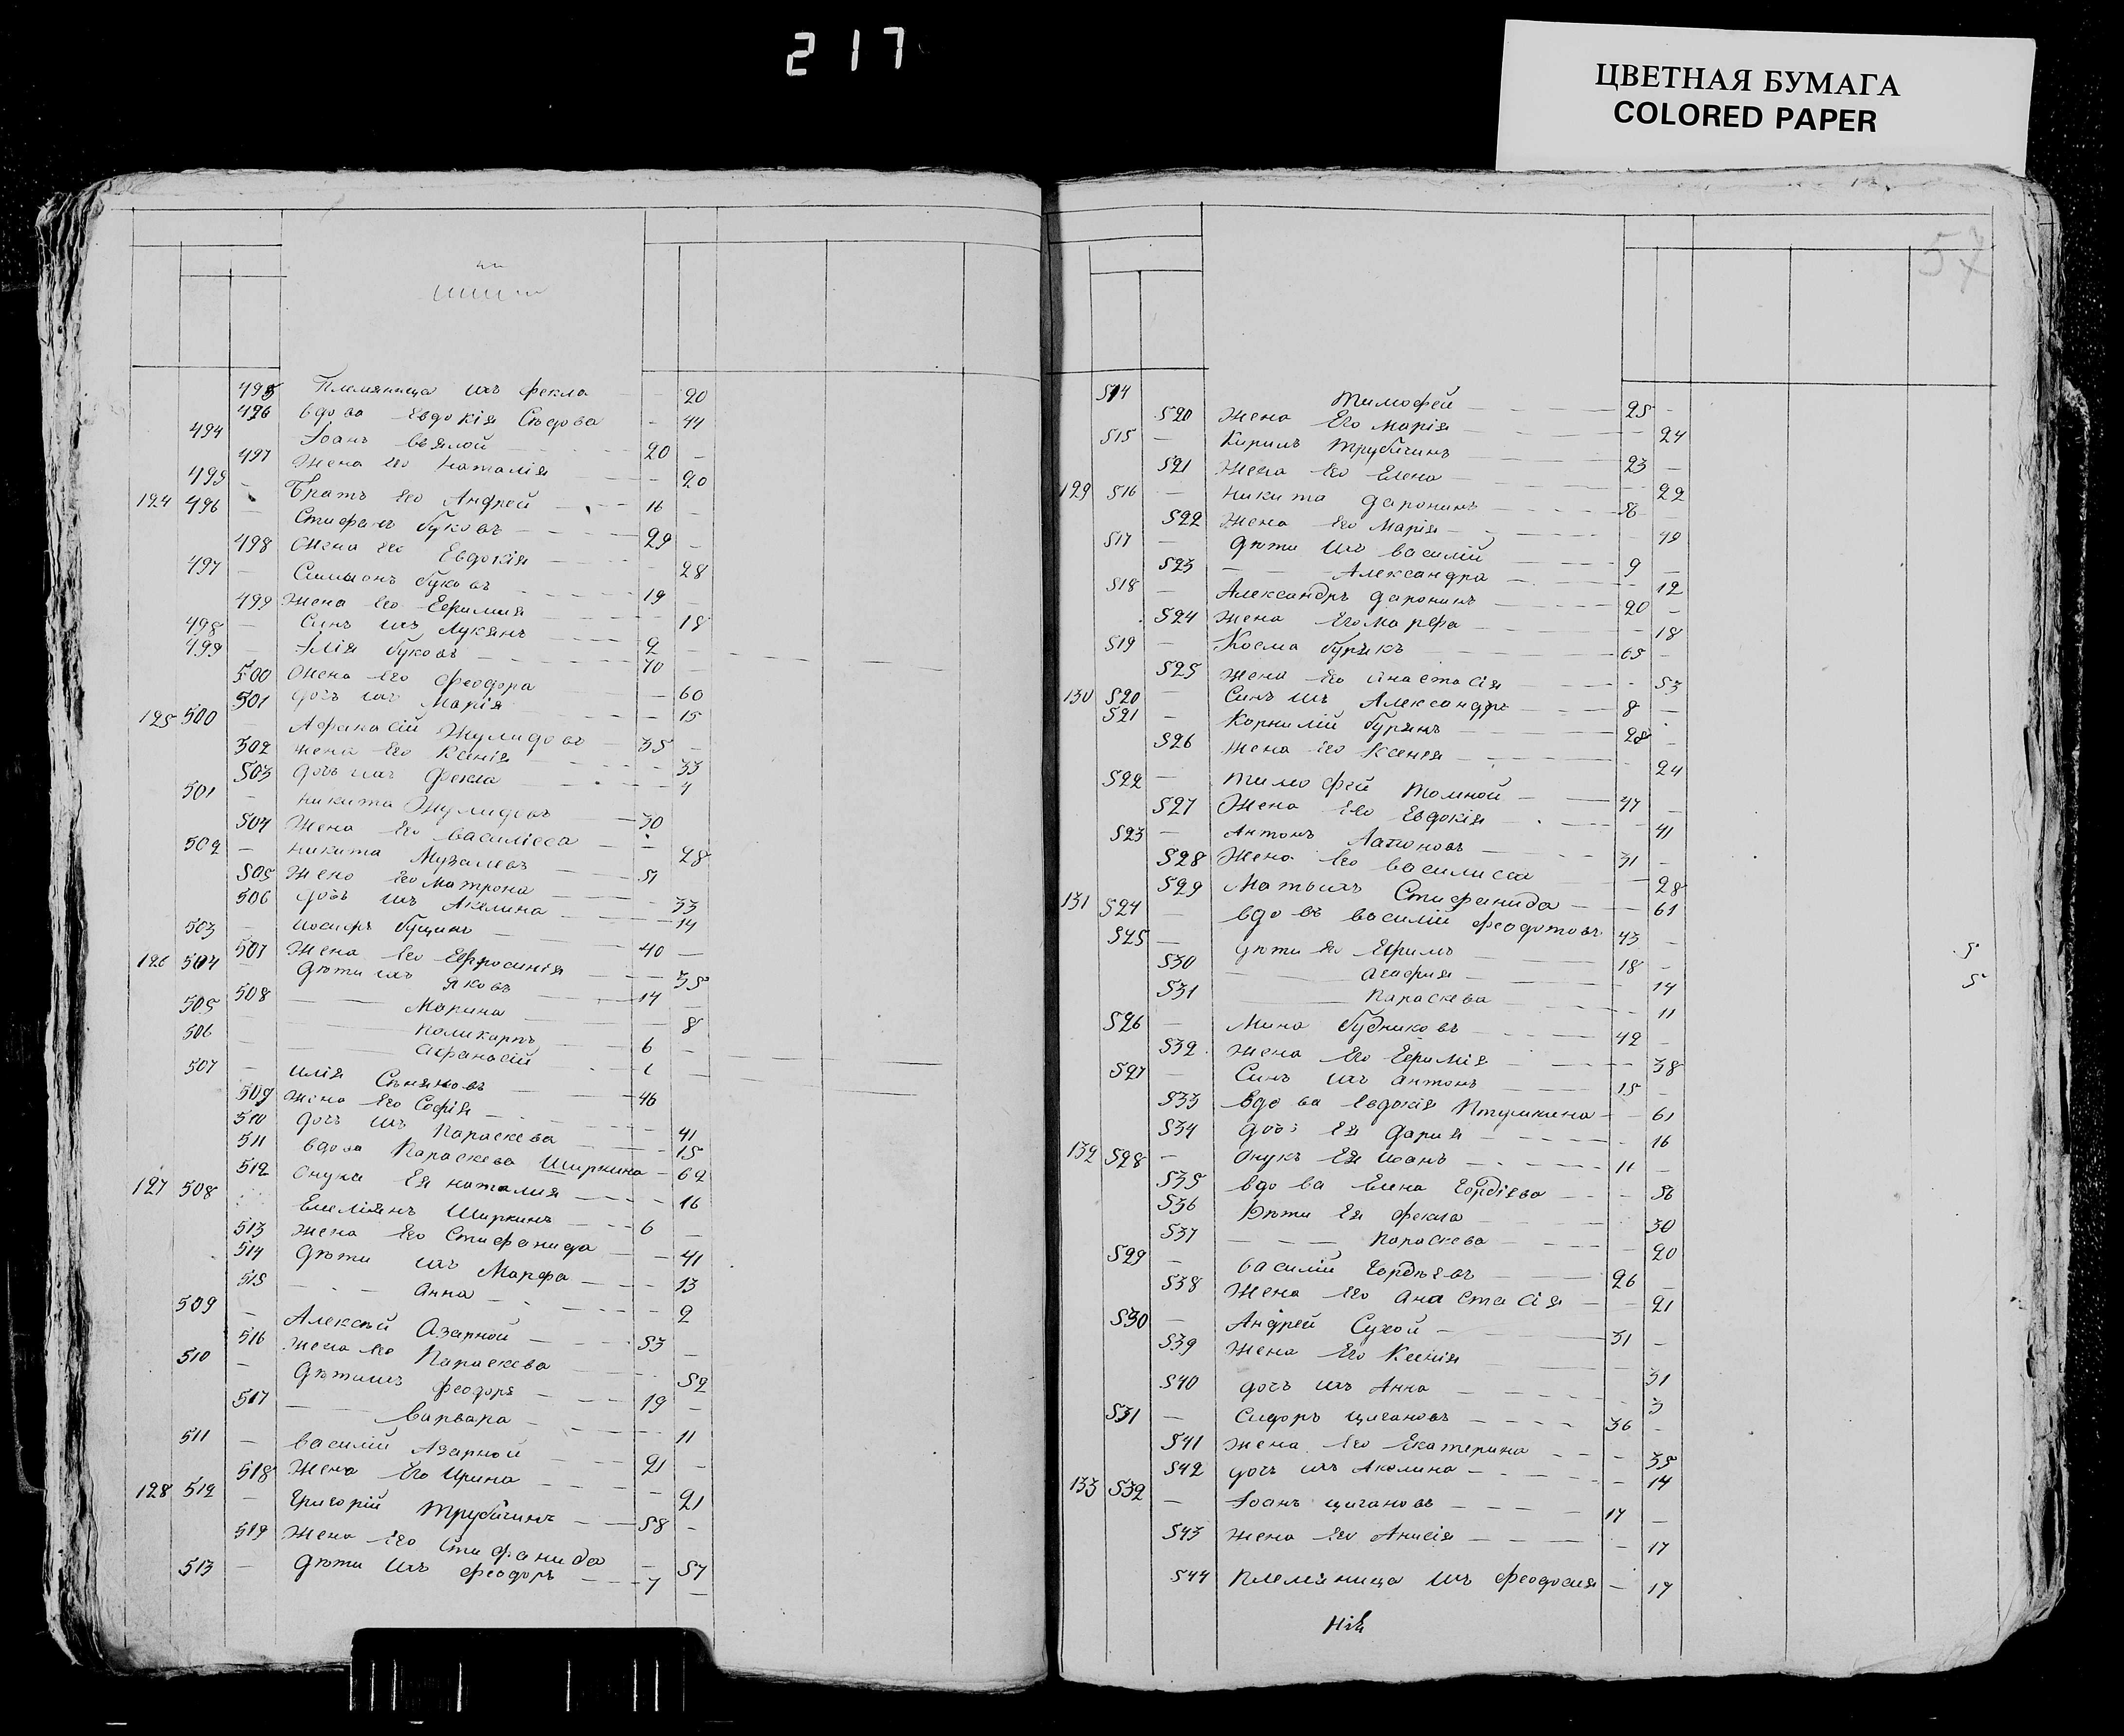 217
ЦВЕТНАЯ БУМАГА
COLORED PAPER
57
495 Племяница ихъ Фекла 20
496 вдова Евдокія Съедова 44
494 Іоанъ вялой 20
497 Жена его Наталія 20
495 Братъ его Андрей 16
124 496 Стефанъ Буковъ 29
498 Жена его Евдокія 28
497 Симионъ Буковъ 19
499 Жена его Ефимия 18
498 Синъ ихъ Лукянъ 2
499 Илія Буковъ 70
500 Жена его Феодора 60
501 дочъ ихъ Марія 15
125 500 Афанасій Жулидовъ 35
502 жена его Ксенія 33
503 дочъ ихъ Фекла 4
501 Никита Жулидовъ 30
504 Жена его василісса 28
502 Никита Музалевъ 51
505 Жена его Матрона 33
506 дочъ ихъ Акилина 14
503 Иосифъ Бущинъ 40
507 Жена его Ефросинія 35
126 504 Дѣти ихъ Яковъ 14
508 Марина 8
505 Поликарпъ 6
506 Афанасій 1
507 илія Съняковъ 46
509 Жена его Софія 41
510 дочъ ихъ Параскева 15
511 вдова Параскева Ширкина 62
512 Внука Ея наталия 16
127 508 Емеліянъ Ширкинъ 6
513 жена его Стефанида 41
514 Дѣти ихъ Марфа 13
515 Анна 2
509 Алексѣй Азарной 53
516 жена его Параскева 52
510 Дѣти ихъ Феодоръ 19
517 Варвара 11
511 Василій Азарной 21
518 Жена Его Ирина 21
128 512 Григорій Трубчинъ 58
519 Жена Его Стефанида 57
513 Дѣти ихъ Феодоръ 7
514 Тимофей 25
520 Жена Его Марія 24
515 Кирилъ Трубчинъ 23
521 Жена его Елена 22
129 516 Никита Даронинъ 56
522 Жена его Марія 49
517 Дѣти ихъ Василій 9
523 Александра 12
518 Александръ Даронинъ 20
524 Жена Его Марфа 18
519 Косма Бурякъ 65
525 Жена Его Анастасія 53
130 520 Синъ ихъ Александръ 8
521 Корнилій Бурянъ 28
526 Жена его Ксенія 24
522 Тимофей Толмной 47
527 Жена Его Евдокія 41
523 Антонъ Латоновъ 31
528 Жена Его Василисса 28
529 Мать ихъ Стефанида 61
131 524 вдовъ Василій Феодотовъ 43
525 Дѣти Его Ефимъ 18 5
530 Агафия 14 5
531 Параскева 11
526 Мина Будниковъ 42
532 Жена Его Ефимія 38
527 Синъ ихъ Антонъ 15
533 Вдова Евдокія Птушкина 61
534 Дочъ Ея Дария 16
132 528 Внукъ Ея Иоанъ 11
535 вдова Елена Гордіева 56
536 Дѣти Ея Фекла 30
537 Параскева 20
529 Василій Гордѣевъ 26
538 Жена Его Анастасія 21
530 Андрей Сухой 31
539 Жена Его Ксенія 31
540 дочъ ихъ Анна 3
531 Сидоръ Цигановъ 36
541 Жена его Екатерина 35
542 дочъ ихъ Акилина 14
133 532 Іоанъ Цигановъ 17
543 Жена его Анисія 17
544 Племяница ихъ Феодосия 17